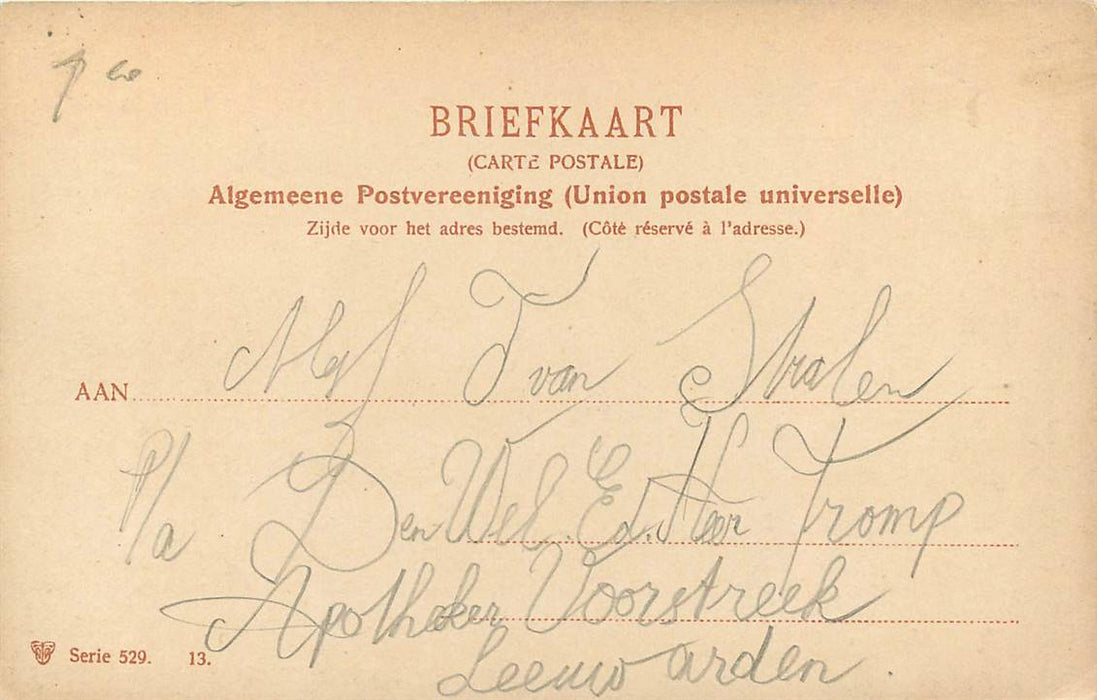 BRIEFKAART
(CARTE POSTALE)
Algemeene Postvereeniging (Union postale universelle)
Zijde voor het adres bestemd. (Côté réservé à l'adresse.)
AAN Mej T van Stralen
P/a Den Wel. Ed. Heer Tromp
Apotheker Voorstreek
Leeuwarden
Serie 529. 13.